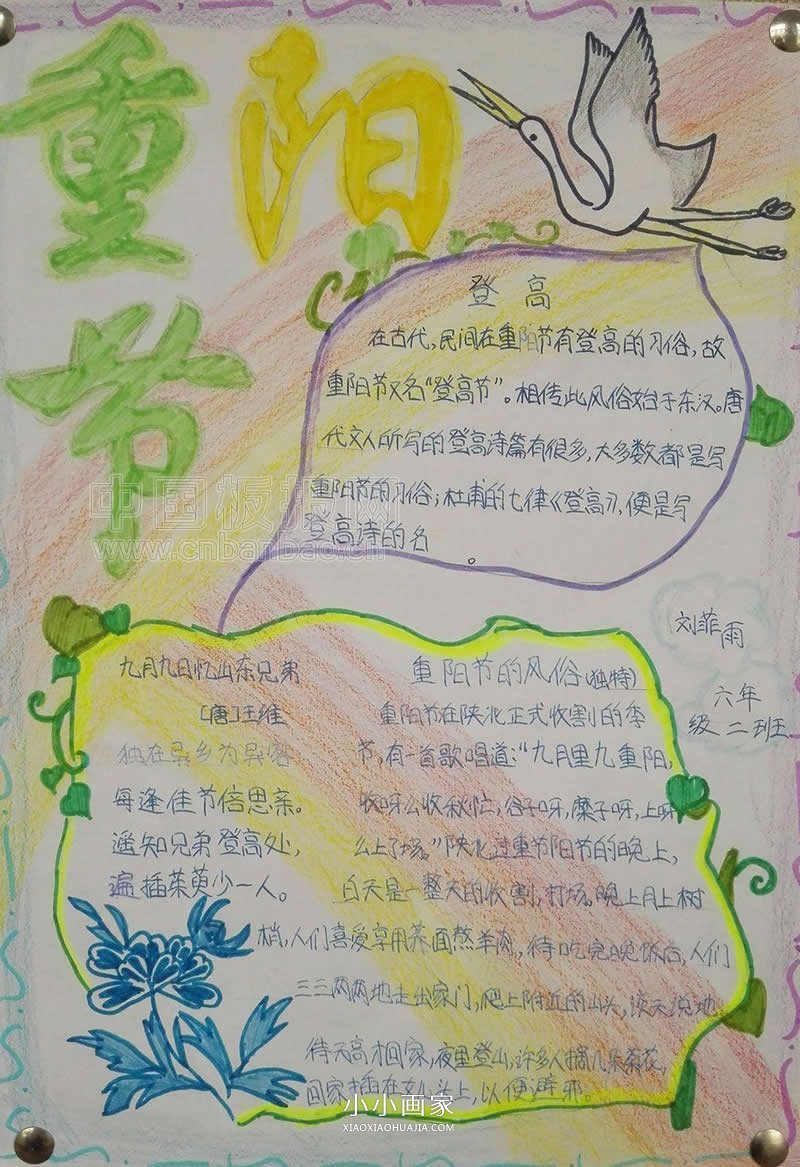 重阳
节
登高
在古代，民间在重阳节有登高的习俗，故
重阳节又名“登高节”。相传此风俗始于东汉。唐
代文人所写的登高诗篇有很多，大多数都是写
重阳节的习俗；杜甫的七律《登高》，便是写
登高诗的名
。
中国板报网
www.cnbanbao.cn
刘菲雨
六年
级二班
九月九日忆山东兄弟
[唐]王维
独在异乡为异客
每逢佳节倍思亲。
遥知兄弟登高处，
遍插茱萸少一人。
重阳节的风俗(独特)
重阳节在陕北正式收割的季
节，有一首歌唱道：“九月里九重阳，
收呀么收秋忙，谷子呀，糜子呀，上呀
么上了场。”陕北过重节阳节的晚上，
白天是一整天的收割，打场。晚上月上树
梢，人们喜爱享用荞面熬羊肉，待吃完晚饭后，人们
三三两两地走出家门，爬上附近的山头，谈天说地
待天高才回家，夜里登山，许多人摘几朵菊花，
回家插在女儿头上，以便避邪。
小小画家
XIAOXIAOHUAJIA.COM